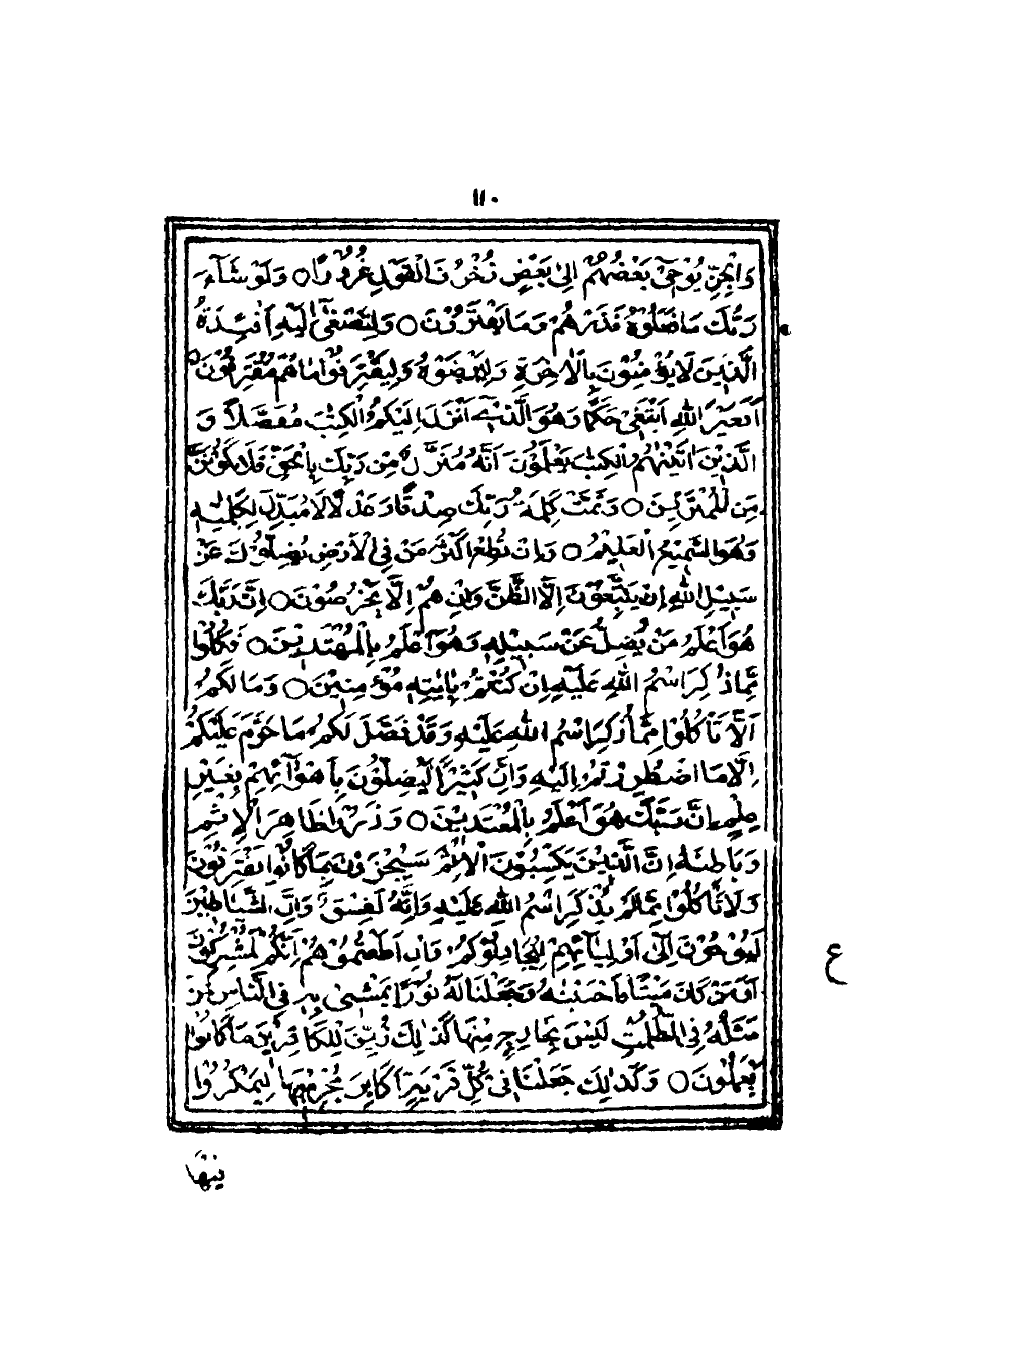 ١١٠
وَالْجِنِّ يُوْحِيْ بَعْضُهُمْ اِلٰى بَعْضٍ زُخْرُفَ الْقَوْلِ غُرُوْرًا ○ وَلَوْ شَآءَ
رَبُّكَ مَا فَعَلُوْهُ فَذَرْهُمْ وَمَا يَفْتَرُوْنَ ○ وَلِتَصْغٰٓى اِلَيْهِ اَفْـِٕدَةُ
الَّذِيْنَ لَا يُؤْمِنُوْنَ بِالْاٰخِرَةِ وَلِيَرْضَوْهُ وَلِيَقْتَرِفُوْا مَا هُمْ مُّقْتَرِفُوْنَ ○
اَفَغَيْرَ اللّٰهِ اَبْتَغِيْ حَكَمًا وَّهُوَ الَّذِيْٓ اَنْزَلَ اِلَيْكُمُ الْكِتٰبَ مُفَصَّلًا ؕ وَ
الَّذِيْنَ اٰتَيْنٰهُمُ الْكِتٰبَ يَعْلَمُوْنَ اَنَّهٗ مُنَزَّلٌ مِّنْ رَّبِّكَ بِالْحَقِّ فَلَا تَكُوْنَنَّ
مِنَ الْمُمْتَرِيْنَ ○ وَتَمَّتْ كَلِمَةُ رَبِّكَ صِدْقًا وَّعَدْلًا لَا مُبَدِّلَ لِكَلِمٰتِهٖ
وَهُوَ السَّمِيْعُ الْعَلِيْمُ ○ وَاِنْ تُطِعْ اَكْثَرَ مَنْ فِي الْاَرْضِ يُضِلُّوْكَ عَنْ
سَبِيْلِ اللّٰهِ اِنْ يَّتَّبِعُوْنَ اِلَّا الظَّنَّ وَاِنْ هُمْ اِلَّا يَخْرُصُوْنَ ○ اِنَّ رَبَّكَ
هُوَ اَعْلَمُ مَنْ يَّضِلُّ عَنْ سَبِيْلِهٖ وَهُوَ اَعْلَمُ بِالْمُهْتَدِيْنَ ○ فَكُلُوْا
مِمَّا ذُكِرَ اسْمُ اللّٰهِ عَلَيْهِ اِنْ كُنْتُمْ بِاٰيٰتِهٖ مُؤْمِنِيْنَ ○ وَمَا لَكُمْ
اَلَّا تَاْكُلُوْا مِمَّا ذُكِرَ اسْمُ اللّٰهِ عَلَيْهِ وَقَدْ فَصَّلَ لَكُمْ مَّا حَرَّمَ عَلَيْكُمْ
اِلَّا مَا اضْطُرِرْتُمْ اِلَيْهِ وَاِنَّ كَثِيْرًا لَّيُضِلُّوْنَ بِاَهْوَآئِهِمْ بِغَيْرِ
عِلْمٍ اِنَّ رَبَّكَ هُوَ اَعْلَمُ بِالْمُعْتَدِيْنَ ○ وَذَرُوْا ظَاهِرَ الْاِثْمِ
وَبَاطِنَهٗ اِنَّ الَّذِيْنَ يَكْسِبُوْنَ الْاِثْمَ سَيُجْزَوْنَ بِمَا كَانُوْا يَقْتَرِفُوْنَ
وَلَا تَاْكُلُوْا مِمَّا لَمْ يُذْكَرِ اسْمُ اللّٰهِ عَلَيْهِ وَاِنَّهٗ لَفِسْقٌ وَاِنَّ الشَّيٰطِيْنَ
لَيُوْحُوْنَ اِلٰٓى اَوْلِيٰٓئِهِمْ لِيُجَادِلُوْكُمْ وَاِنْ اَطَعْتُمُوْهُمْ اِنَّكُمْ لَمُشْرِكُوْنَ
اَوَمَنْ كَانَ مَيْتًا فَاَحْيَيْنٰهُ وَجَعَلْنَا لَهٗ نُوْرًا يَّمْشِيْ بِهٖ فِي النَّاسِ كَمَنْ
مَّثَلُهٗ فِي الظُّلُمٰتِ لَيْسَ بِخَارِجٍ مِّنْهَا كَذٰلِكَ زُيِّنَ لِلْكٰفِرِيْنَ مَا كَانُوْا
يَعْمَلُوْنَ ○ وَكَذٰلِكَ جَعَلْنَا فِيْ كُلِّ قَرْيَةٍ اَكٰبِرَ مُجْرِمِيْهَا لِيَمْكُرُوْا
ع
فِيْهَا